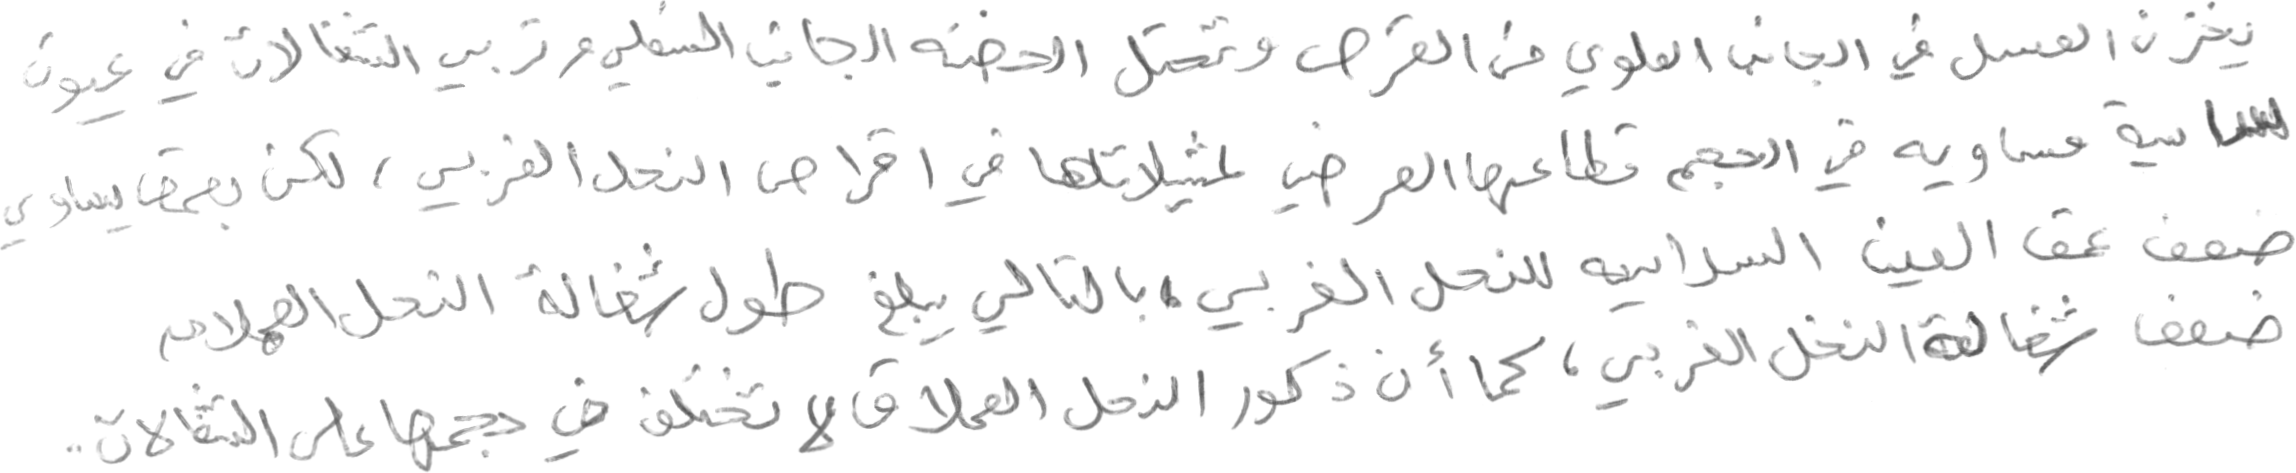 يخزن العسل في الجانب العلوي من القرص وتحتل الحضنه الجانب السفلي وتربي الشغالات في عيون
سداسية مساويه في الحجم قطاعها العرضي لمثيلاتها في اقراص النحل الغربي، لكن بعمق يساوي
ضعف عمق العين السداسيه للنحل الغربي، بالتالي يبلغ طول شغالة النحل العملاق
ضعف شغالة النحل الغربي، كما أن ذكور النحل العملاق لا تختلف في حجمها على الشغالات..